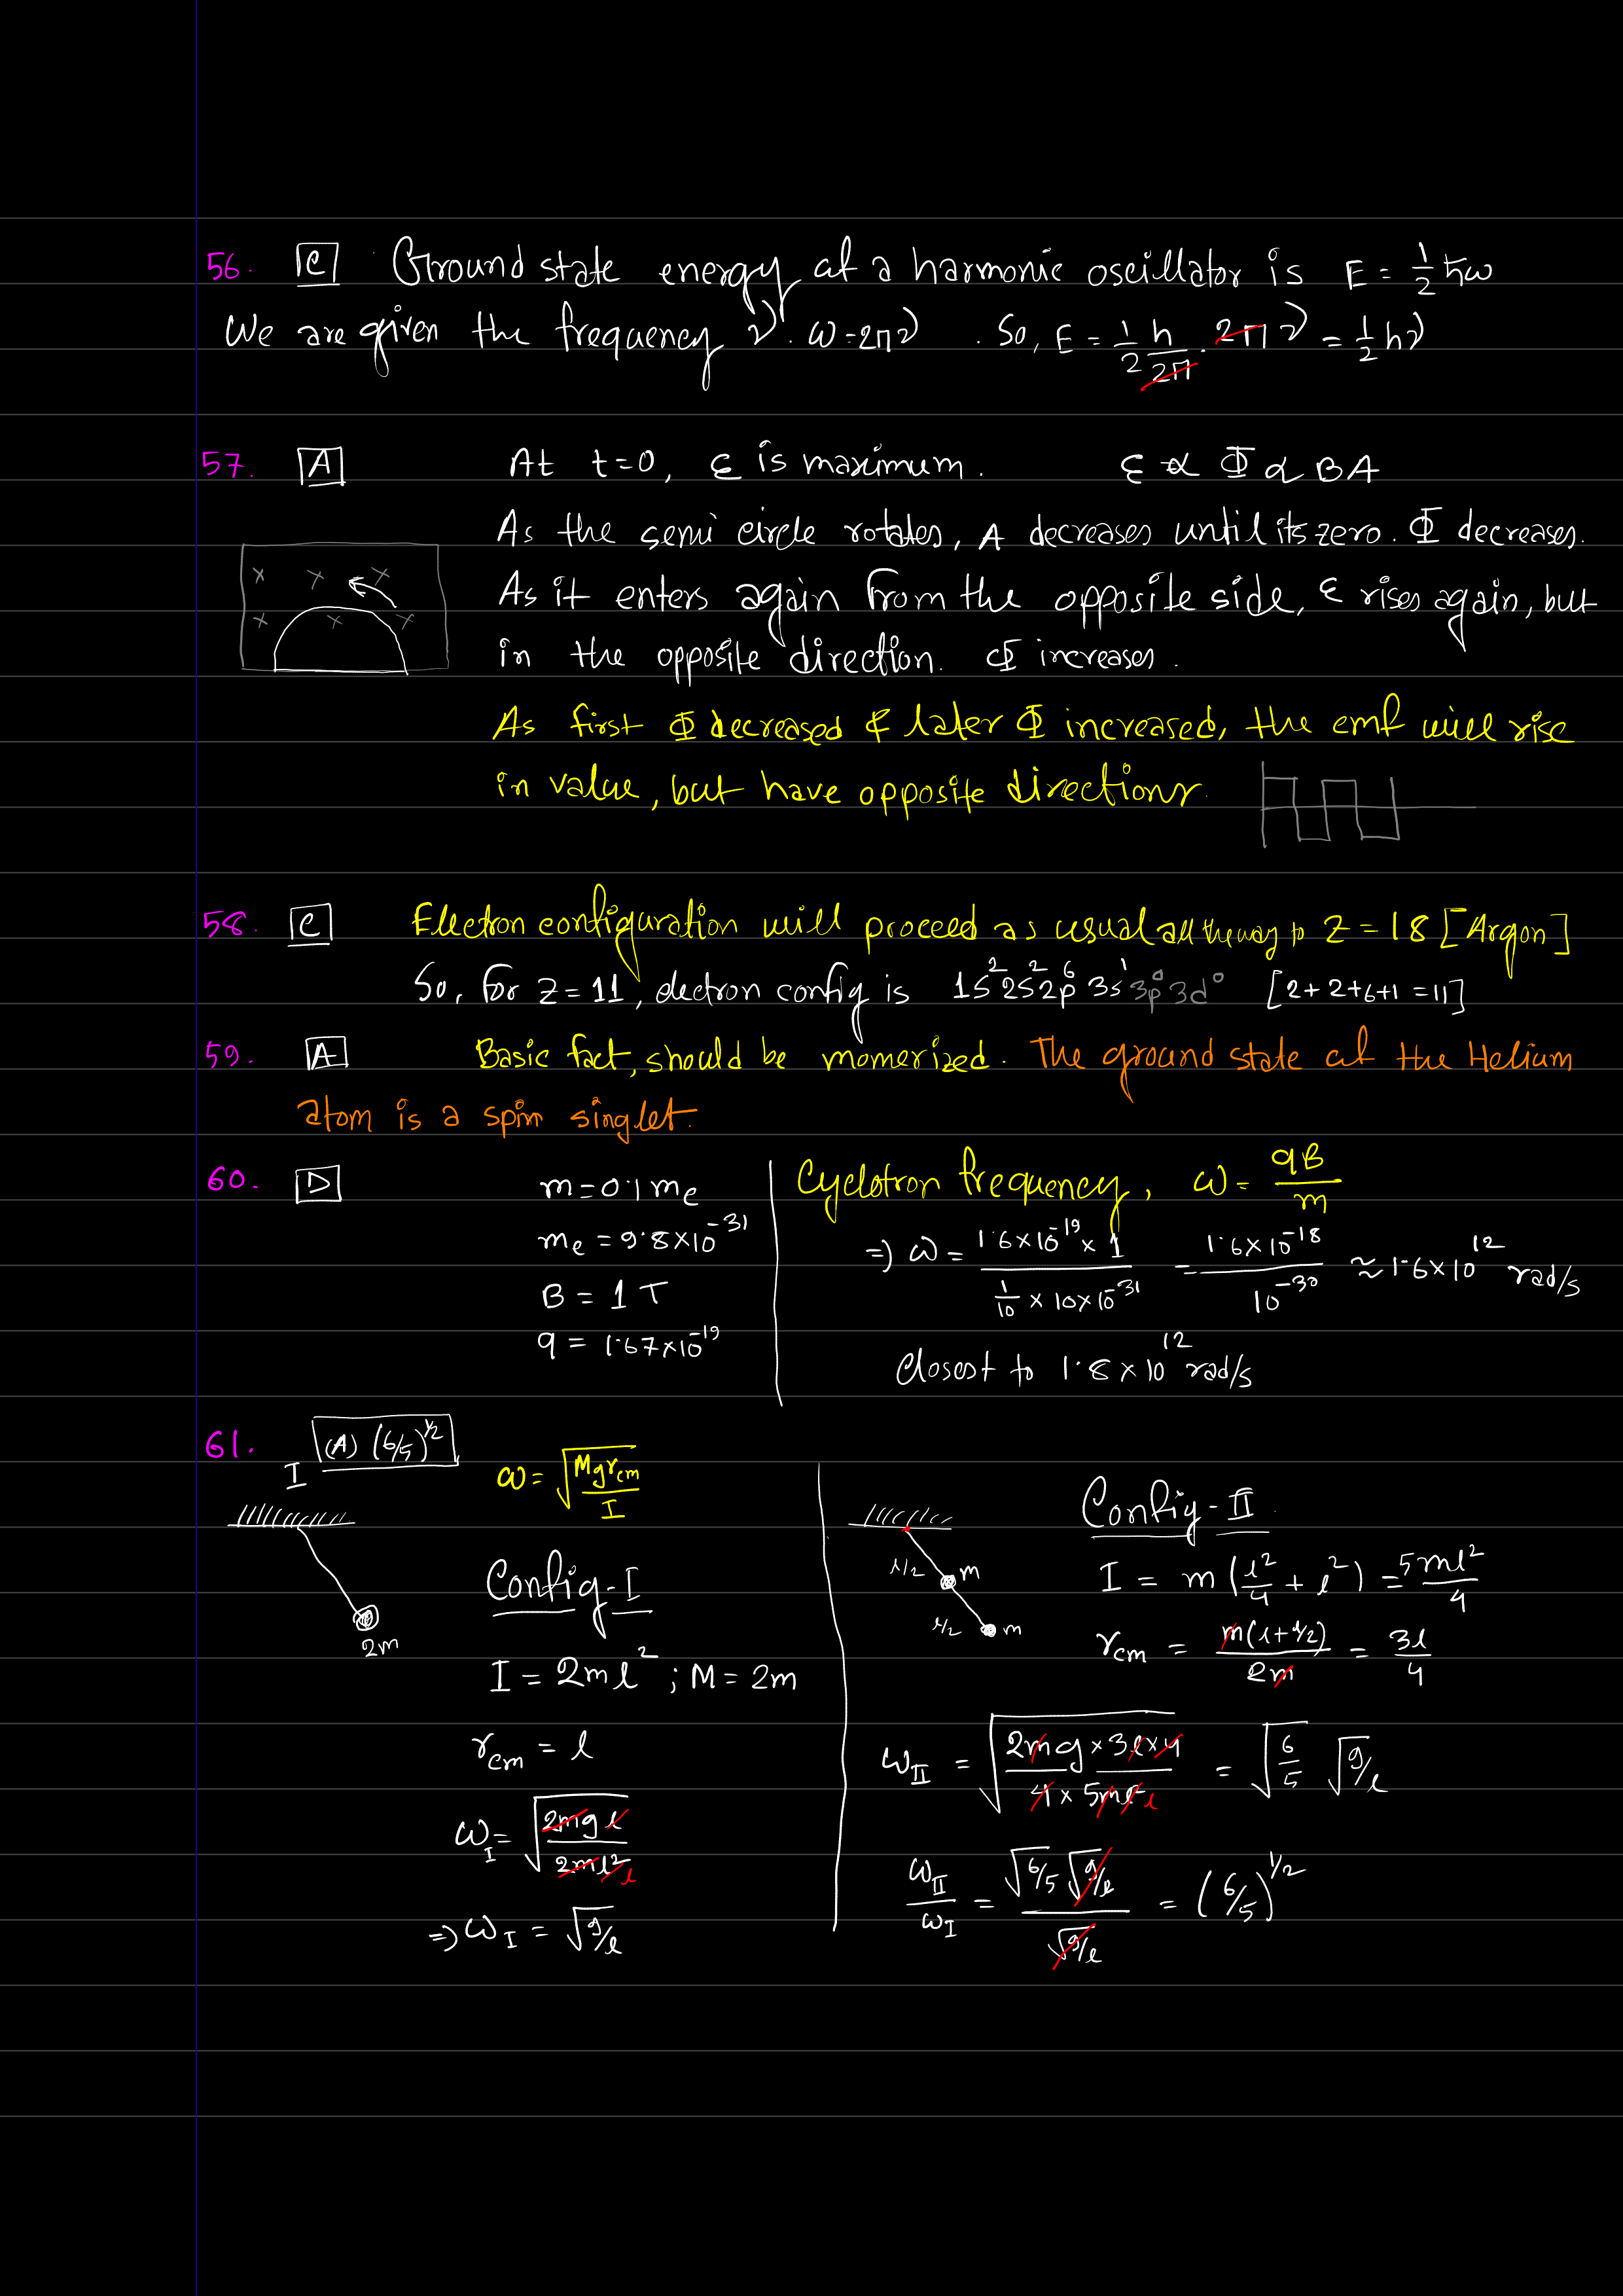 56. C Ground state energy of a harmonic oscillator is E = 1/2 ħω
We are given the frequency ν. ω = 2πν. So, E = 1/2 h/2π · 2π ν = 1/2 hν
57. A At t=0, ε is maximum. ε ∝ Φ ∝ BA
As the semi circle rotates, A decreases until its zero. Φ decreases.
As it enters again from the opposite side, ε rises again, but
in the opposite direction. Φ increases.
As first Φ decreased & later Φ increased, the emf will rise
in value, but have opposite directions.
58. C Electron configuration will proceed as usual all the way to Z = 18 [Argon]
So, for Z = 11, electron config is 1s² 2s² 2p⁶ 3s¹ 3p⁰ 3d⁰ [2+2+6+1 = 11]
59. A Basic fact, should be momerized. The ground state of the Helium
atom is a spin singlet.
60. D
m = 0.1 mₑ
mₑ = 9.8×10⁻³¹
B = 1 T
q = 1.67×10⁻¹⁹
Cyclotron frequency, ω = qB/m
⇒ ω = (1.6×10⁻¹⁹ × 1)/(1/10 × 10×10⁻³¹) = (1.6×10⁻¹⁸)/(10⁻³⁰) ≈ 1.6×10¹² rad/s
Closest to 1.8×10¹² rad/s
61. (A) (6/5)^1/2
I
ω = √(Mg r_cm / I)
2m
Config-I
I = 2ml² ; M = 2m
r_cm = l
ω_I = √(2mgl / 2ml² l)
⇒ ω_I = √(g/l)
l/2 m
l/2 m
Config-II
I = m(l²/4 + l²) = 5ml²/4
r_cm = m(l+l/2)/2m = 3l/4
ω_II = √(2mg×3l×4 / 4×5ml² l) = √(6/5) √(g/l)
ω_II/ω_I = √(6/5) √(g/l) / √(g/l) = (6/5)^1/2